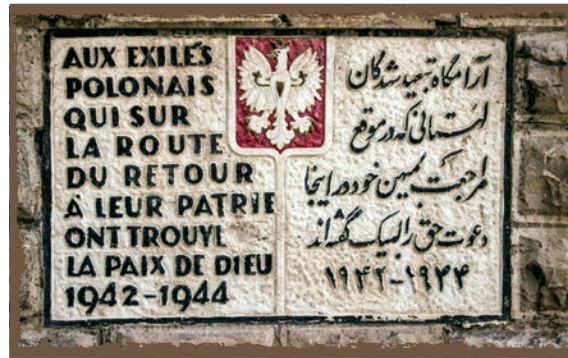 AUX EXILÉS
POLONAIS
QUI SUR
LA ROUTE
DU RETOUR
À LEUR PATRIE
ONT TROUVÉ
LA PAIX DE DIEU
1942-1944
آرامگاه تبعید شدگان
لهستانی که در موقع
مراجعت بمیهن خود در اینجا
دعوت حق را لبیک گفته‌اند
۱۹۴۲-۱۹۴۴